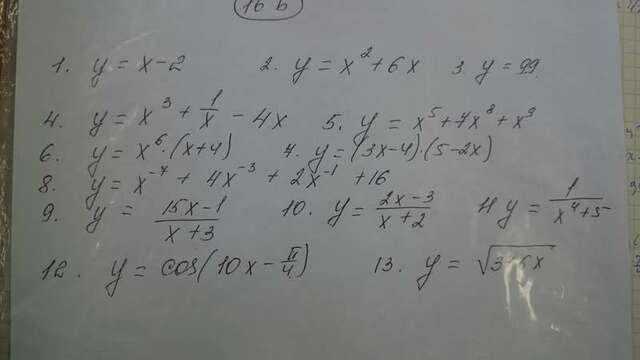 16 b
1. y = x - 2 2. y = x² + 6x 3. y = 99.
4. y = x³ + 1/x - 4x 5. y = x⁵ + 7x⁸ + x⁹
6. y = x⁶ · (x+4) 7. y = (3x-4) · (5-2x)
8. y = x⁻⁷ + 4x⁻³ + 2x⁻¹ + 16
9. y = 15x-1/x+3 10. y = 2x-3/x+2 11 y = 1/x⁴+5
12. y = cos(10x - π/4) 13. y =